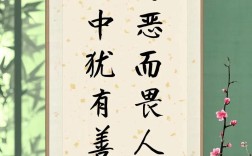 恶而畏人
中犹有善